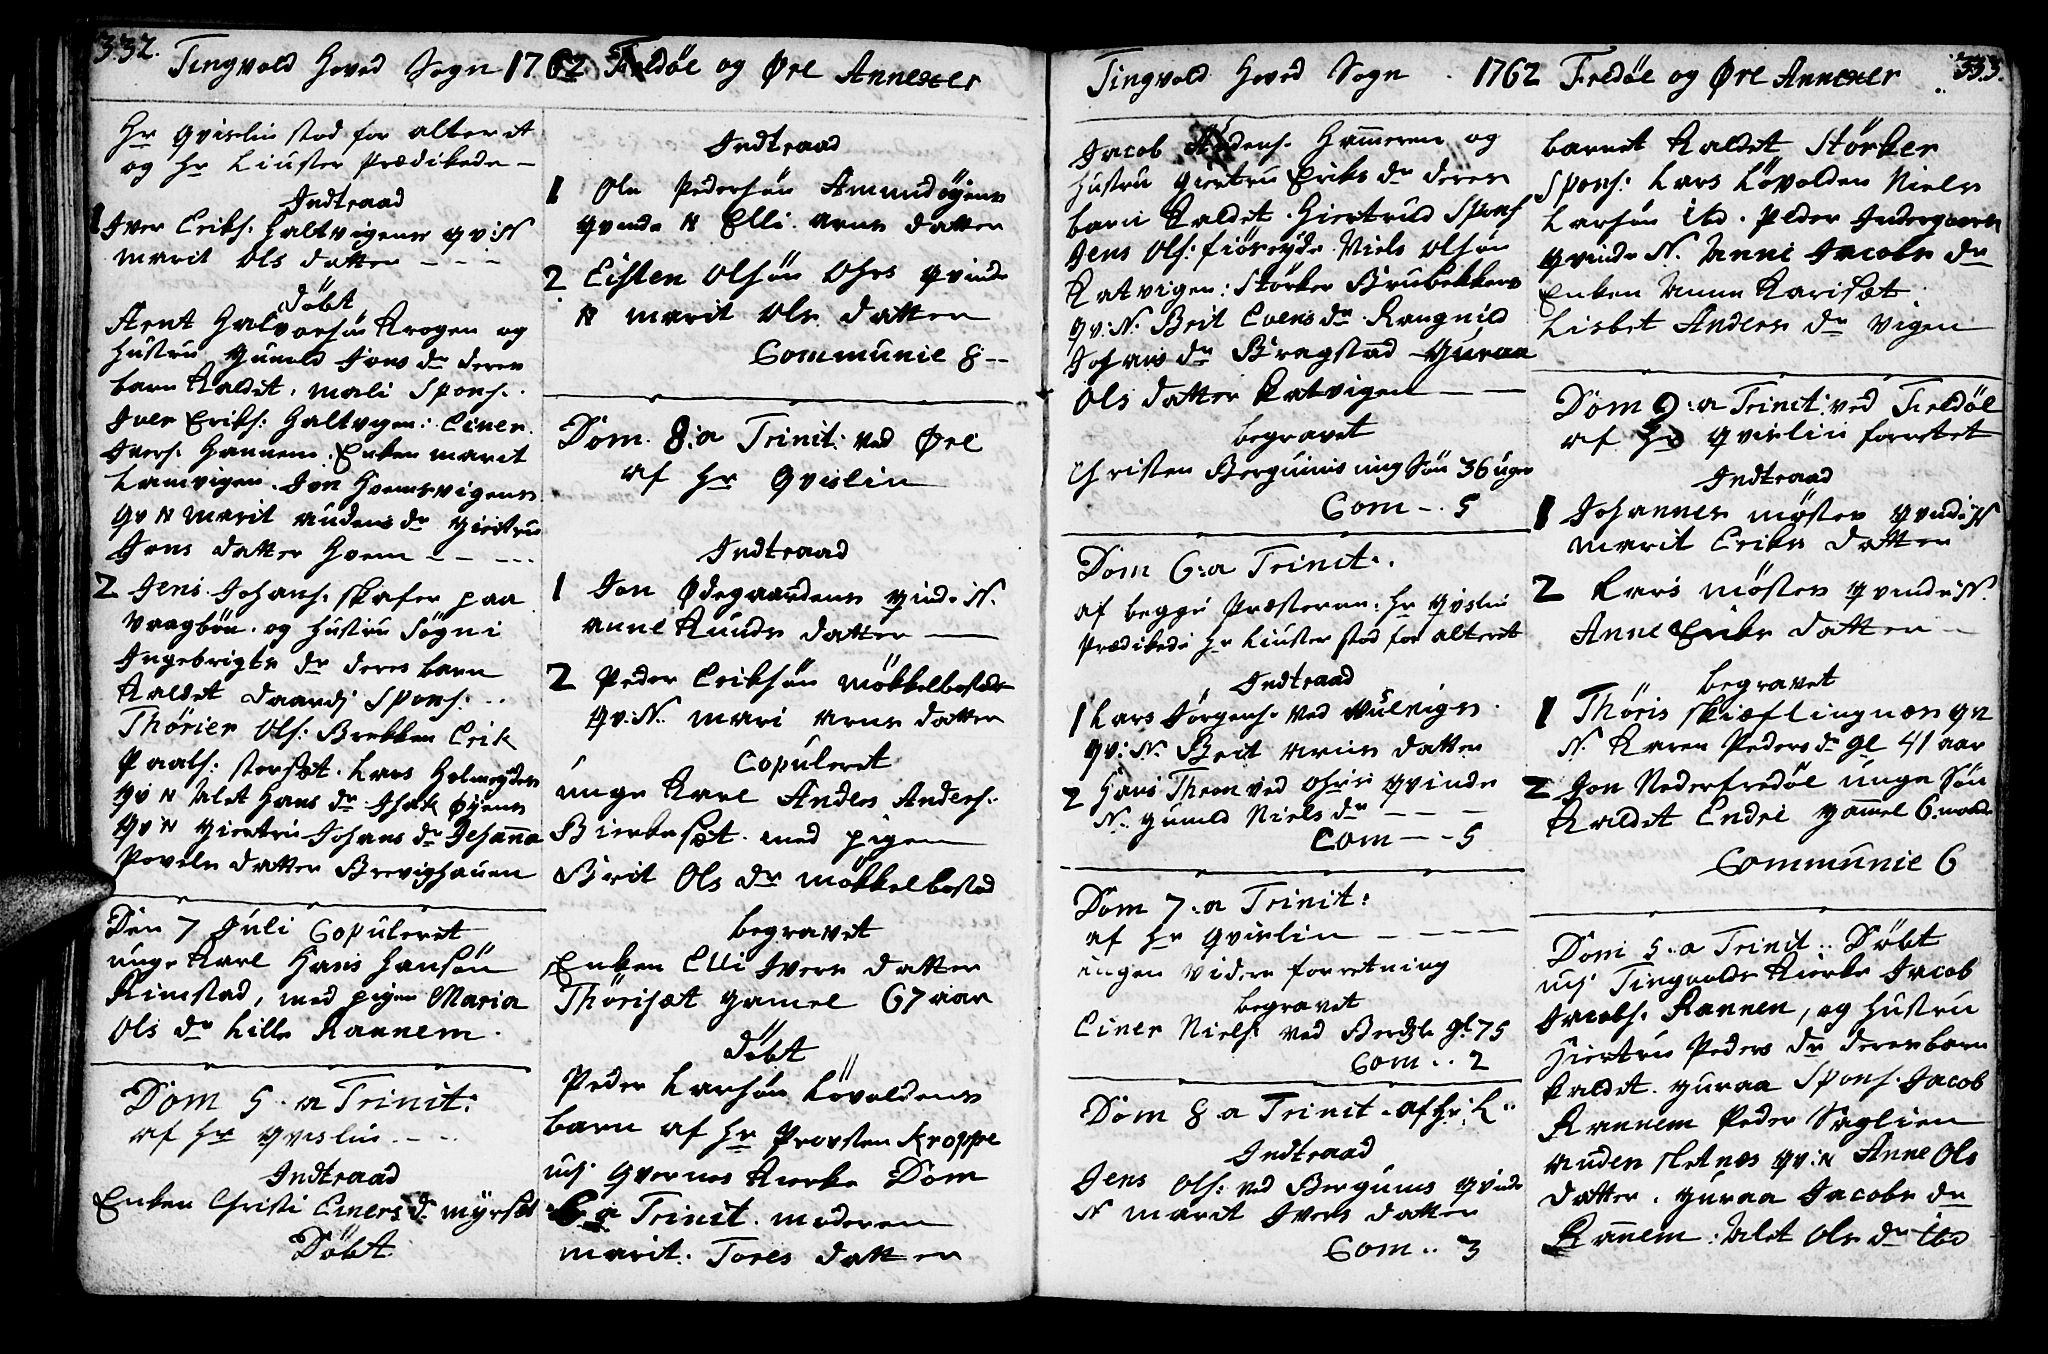 332. Tingvold Hoved Sogn 1762 Fredöe og Øre Annexer
Hr Qvislin stod for alterit
og Hr Liuster Prædikede -
Indtraad
1 Iver Eriks: Haltvigens qv: N
Marit Ols datter - - -
Döbt
Arnt Halvorsön Krogen og
Hustru Guneld Jons dr deres
barn Kaldet, Mali Spons:
Iver Eriks: Haltvigen: Einer
Ivers: Hannem. Enken Marit
Lamvigen. Jon Hoemsvigens
qv N Marit Audens dr Giertru
Jons datter Hoem - - ---
2 Jens Johans: skafer paa
Vaagbön. og Hustru Sögni
Ingebrigts dr deres barn
Kaldet Daardj Spons: ..
Thörier Ols: Brekken Erik
Paals: storsæt. Lars Holmeydes
qv N Alet Hans dr Isak Øyens
qv N Giertru Johans dr Johanna
Povels datter Brevighauen
Den 7 Juli Copuleret
unge Karl Hans Hansön
Rimstad, med pigen Maria
Ols dr Lille Rannem.
Dom 5. a Trinit:
af Hr Qvislin - - -
Indtraad
Enken Christi Einers dr Myrset
Döbt
Indtraad
1 Ole Pedersön Amundöyens
qvinde N Elli Arns datter
2 Eisten Olsön Ohrs qvinde
N Marit Ols datter
Communie 8 --
Dom. 8: a Trinit: ved Øre
af Hr Qvislin
Indtraad
1 Jon Ødegaardens qvinde N.
Anne Knuds datter -
2 Peder Eriksön Mökkelbostads
qv: N. Mari Arns datter
Copuleret
unge Karl Anders Anders:
Bierkesæt med pigen
Brit Ols dr Mökkelbostad
begravet
Enken Elli Ivers datter
Thörisæt gamel 67 aar
Döbt
Peder Larsön Lövoldens
barn af Hr Provsten Kroppe
udj Qvernes Kierke Dom
6 a Trinit. moderen
Marit. Tores datter
Tingvold Hoved Sogn . 1762 Fredöe og Øre Annexer .. 333.
Jacob Audens: Hameren og
Hustru Giertru Eriks dr deres
barn Kaldet. Giertrud Spons
Jens Ols: fiöseyde. Niels Olsön
Katvigen: Störker Brubekkens
qv: N. Brit Evens dr. Rangnild
Johans dr Bragstad Guraa
Ols datter Katvigen -
begravet
Christen Bergums ung Sön 36 uger
Com - . 5
Dom 6: a Trinit:.
af begge Præsterne: Hr Qvislin
Prædikede Hr Liuster stod for alteret
Indtraad
1 Lars Jörgens: ved
qv: N. Brit Arns datter
2 Hans Threm ved Ohrs qvinde
N. Guneld Niels dr - - -
Com - - - 5
Dom 7: a Trinit:
af Hr Qvislin - - - -
ingen videre forretning
begravet
Einer Niels: ved gl. 75
Com .. 2
Dom 8 a Trinit. af Hr: L..
Indtraad
Jens Ols: ved Bergums qvinde
N Marit Ivers datter
Com .. 3
barnet Kaldet Störker
Spons: Lars Lövolden Niels
Larsön ibd. Peder Indergaards
qvinde N. Anne Jacobs dr
Enken Anne Karisæt
Lisbet Anders dr Vigen
Dom 9: a Trinit: ved Fredöe
af Hr Qvislin forrettet
Indtraad
1 Johannes Möster qvinde N
Marit Eriks datter
2 Lars Möster qvinde N.
Anne Eriks datter -
begravet
1 Thöris Skieflingnæs qv
N. Karen Peders dr gl 41 aar
2 Jon Nederfredöe unge Sön
Kaldet Endre gamel 6. mode
Communie 6
Dom 5. a Trinit .. Döbt
udj Tingvolds Kierke Jacob
Jacobs: Rannem, og Hustru
Giertru Peders dr deres barn
Kaldet Guraa Spons: Jacob
Rannem Peder Saglien
Auden Sletnæs qv: N Anne Ols
datter. Guraa Jacobs dr
Rannem: Alet Ols dr ibd